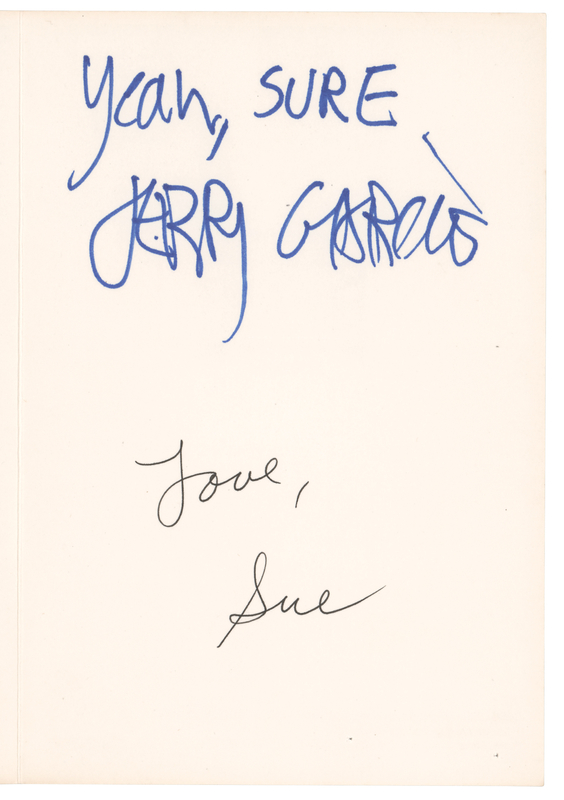 Yeah, SURE
JERRY GARCIA
Love,
Sue